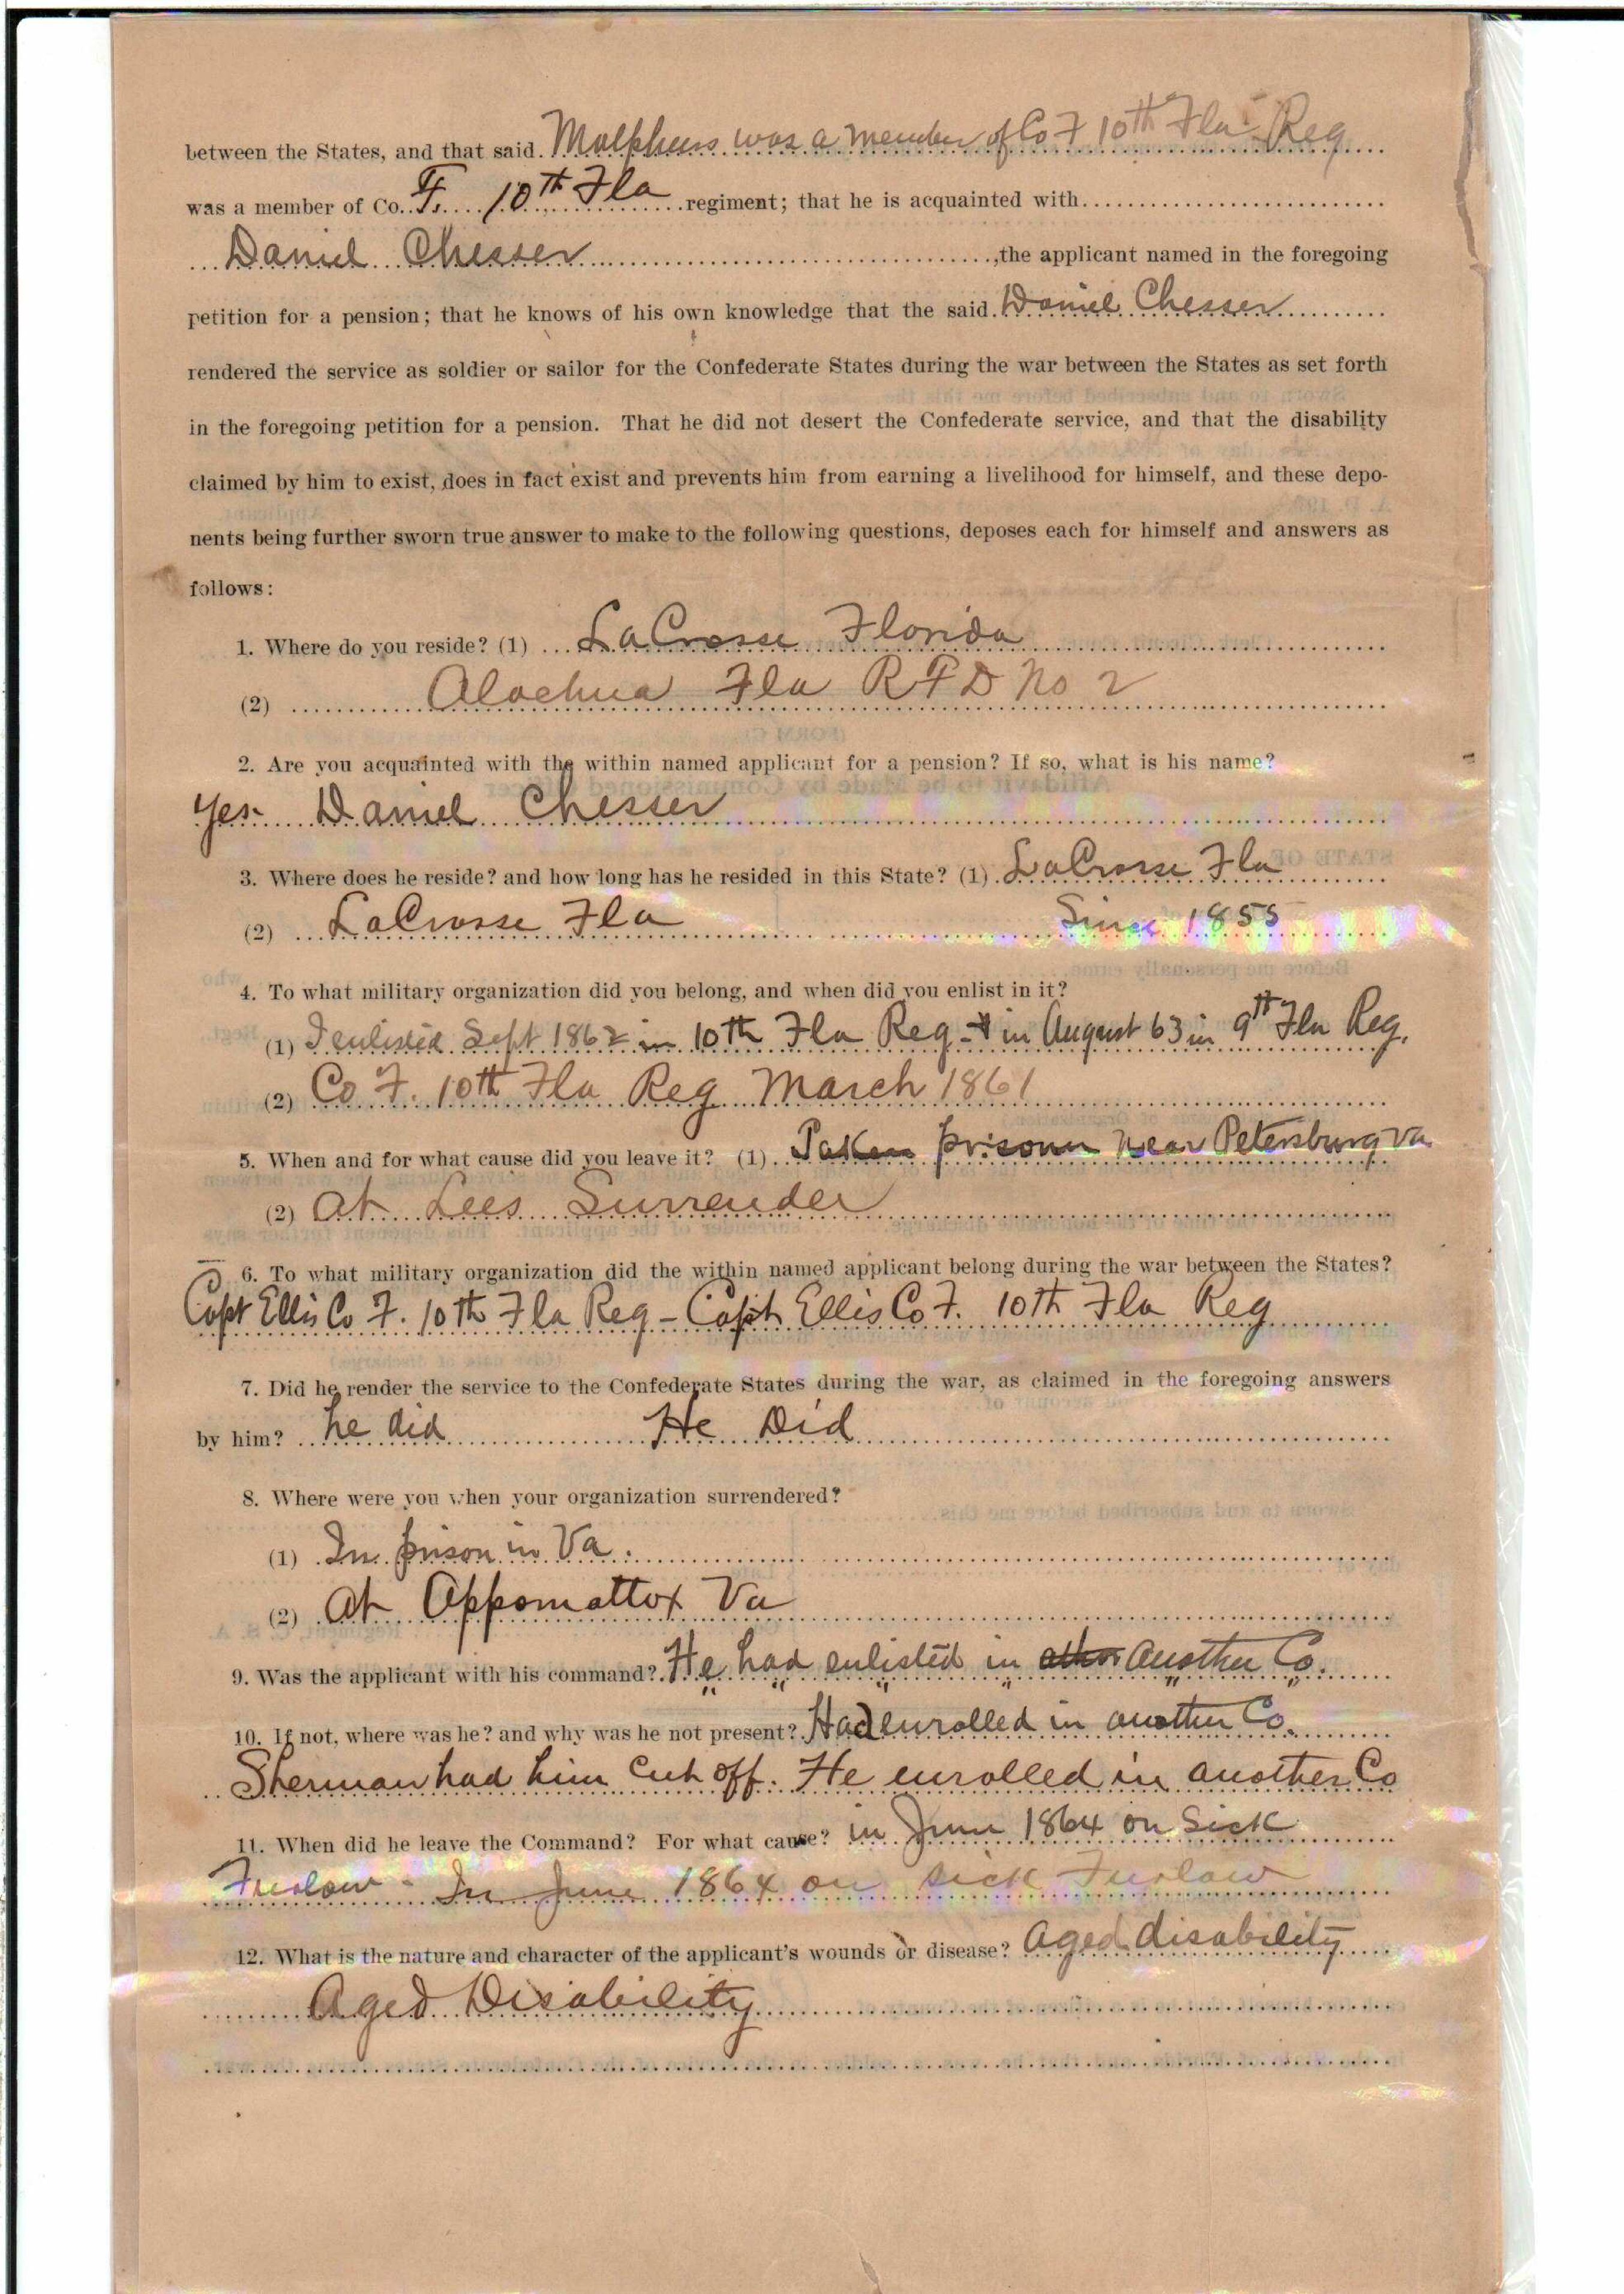 between the States, and that said Malpheus was a member of Co F 10th Fla Reg
was a member of Co. F. 10th Fla regiment; that he is acquainted with
Daniel Chesser, the applicant named in the foregoing
petition for a pension; that he knows of his own knowledge that the said Daniel Chesser
rendered the service as soldier or sailor for the Confederate States during the war between the States as set forth
in the foregoing petition for a pension. That he did not desert the Confederate service, and that the disability
claimed by him to exist, does in fact exist and prevents him from earning a livelihood for himself, and these depo-
nents being further sworn true answer to make to the following questions, deposes each for himself and answers as
follows:
1. Where do you reside? (1) LaCrosse Florida
(2) Alachua Fla R F D No 2
2. Are you acquainted with the within named applicant for a pension? If so, what is his name?
Yes. Daniel Chesser
3. Where does he reside? and how long has he resided in this State? (1) LaCrosse Fla
(2) LaCrosse Fla Since 1855
4. To what military organization did you belong, and when did you enlist in it?
(1) I enlisted Sept 1862 in 10th Fla Reg - & in August 63 in 9th Fla Reg.
(2) Co F. 10th Fla Reg March 1861
5. When and for what cause did you leave it? (1) Taken prisoner near Petersburg Va
(2) at Lees Surrender
6. To what military organization did the within named applicant belong during the war between the States?
Capt Ellis Co F. 10th Fla Reg - Capt Ellis Co F. 10th Fla Reg
7. Did he render the service to the Confederate States during the war, as claimed in the foregoing answers
by him? he did He Did
8. Where were you when your organization surrendered?
(1) In prison in Va.
(2) At Appomattox Va
9. Was the applicant with his command? He had enlisted in other another Co.
" " " " " "
10. If not, where was he? and why was he not present? Had enrolled in another Co.
Sherman had him cut off. He enrolled in another Co
11. When did he leave the Command? For what cause? in June 1864 on Sick
Furlow - In June 1864 on sick Furlow
12. What is the nature and character of the applicant's wounds or disease? Aged disability
Aged Disability